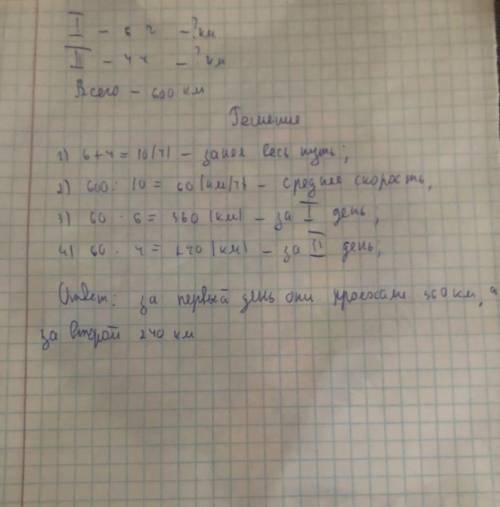 I - 6 ч - ? км
II - 4 ч - ? км
Всего - 600 км
Решение
1) 6+4 = 10 (ч) - занял весь путь;
2) 600 : 10 = 60 (км/ч) - средняя скорость,
3) 60 · 6 = 360 (км) - за I день,
4) 60 · 4 = 240 (км) - за II день;
Ответ: за первый день они проехали 360 км, а
за второй 240 км